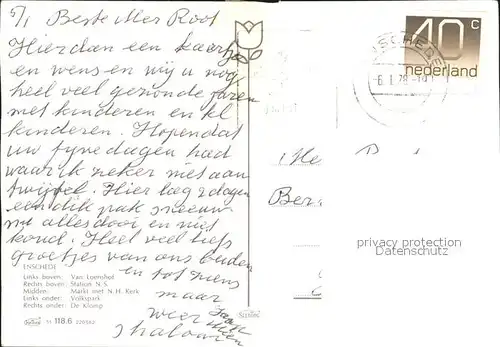 5/1 Beste Mer Root
Hier dan een kaartje
en wens en wij u nog
heel veel gezonde jaren
met kinderen en kl
kinderen. Hopend dat
uw fijne dagen had
waar ik zeker niet aan
twijfel. Hier lag 2 dagen
een dik pak sneeuw
nu alles dooi en niet
koud. Heel veel liefs
groetjes van ons beiden
en tot ziens
maar
weer
Shalom
ENSCHEDE
Links boven: Van Loenshof
Rechts boven: Station N.S.
Midden: Markt met N.H. Kerk
Links onder: Volkspark
Rechts onder: De Klomp
M 118.6
40 c
nederland
SCHEDE
-6.1.78
He
Ber
privacy protection
Datenschutz